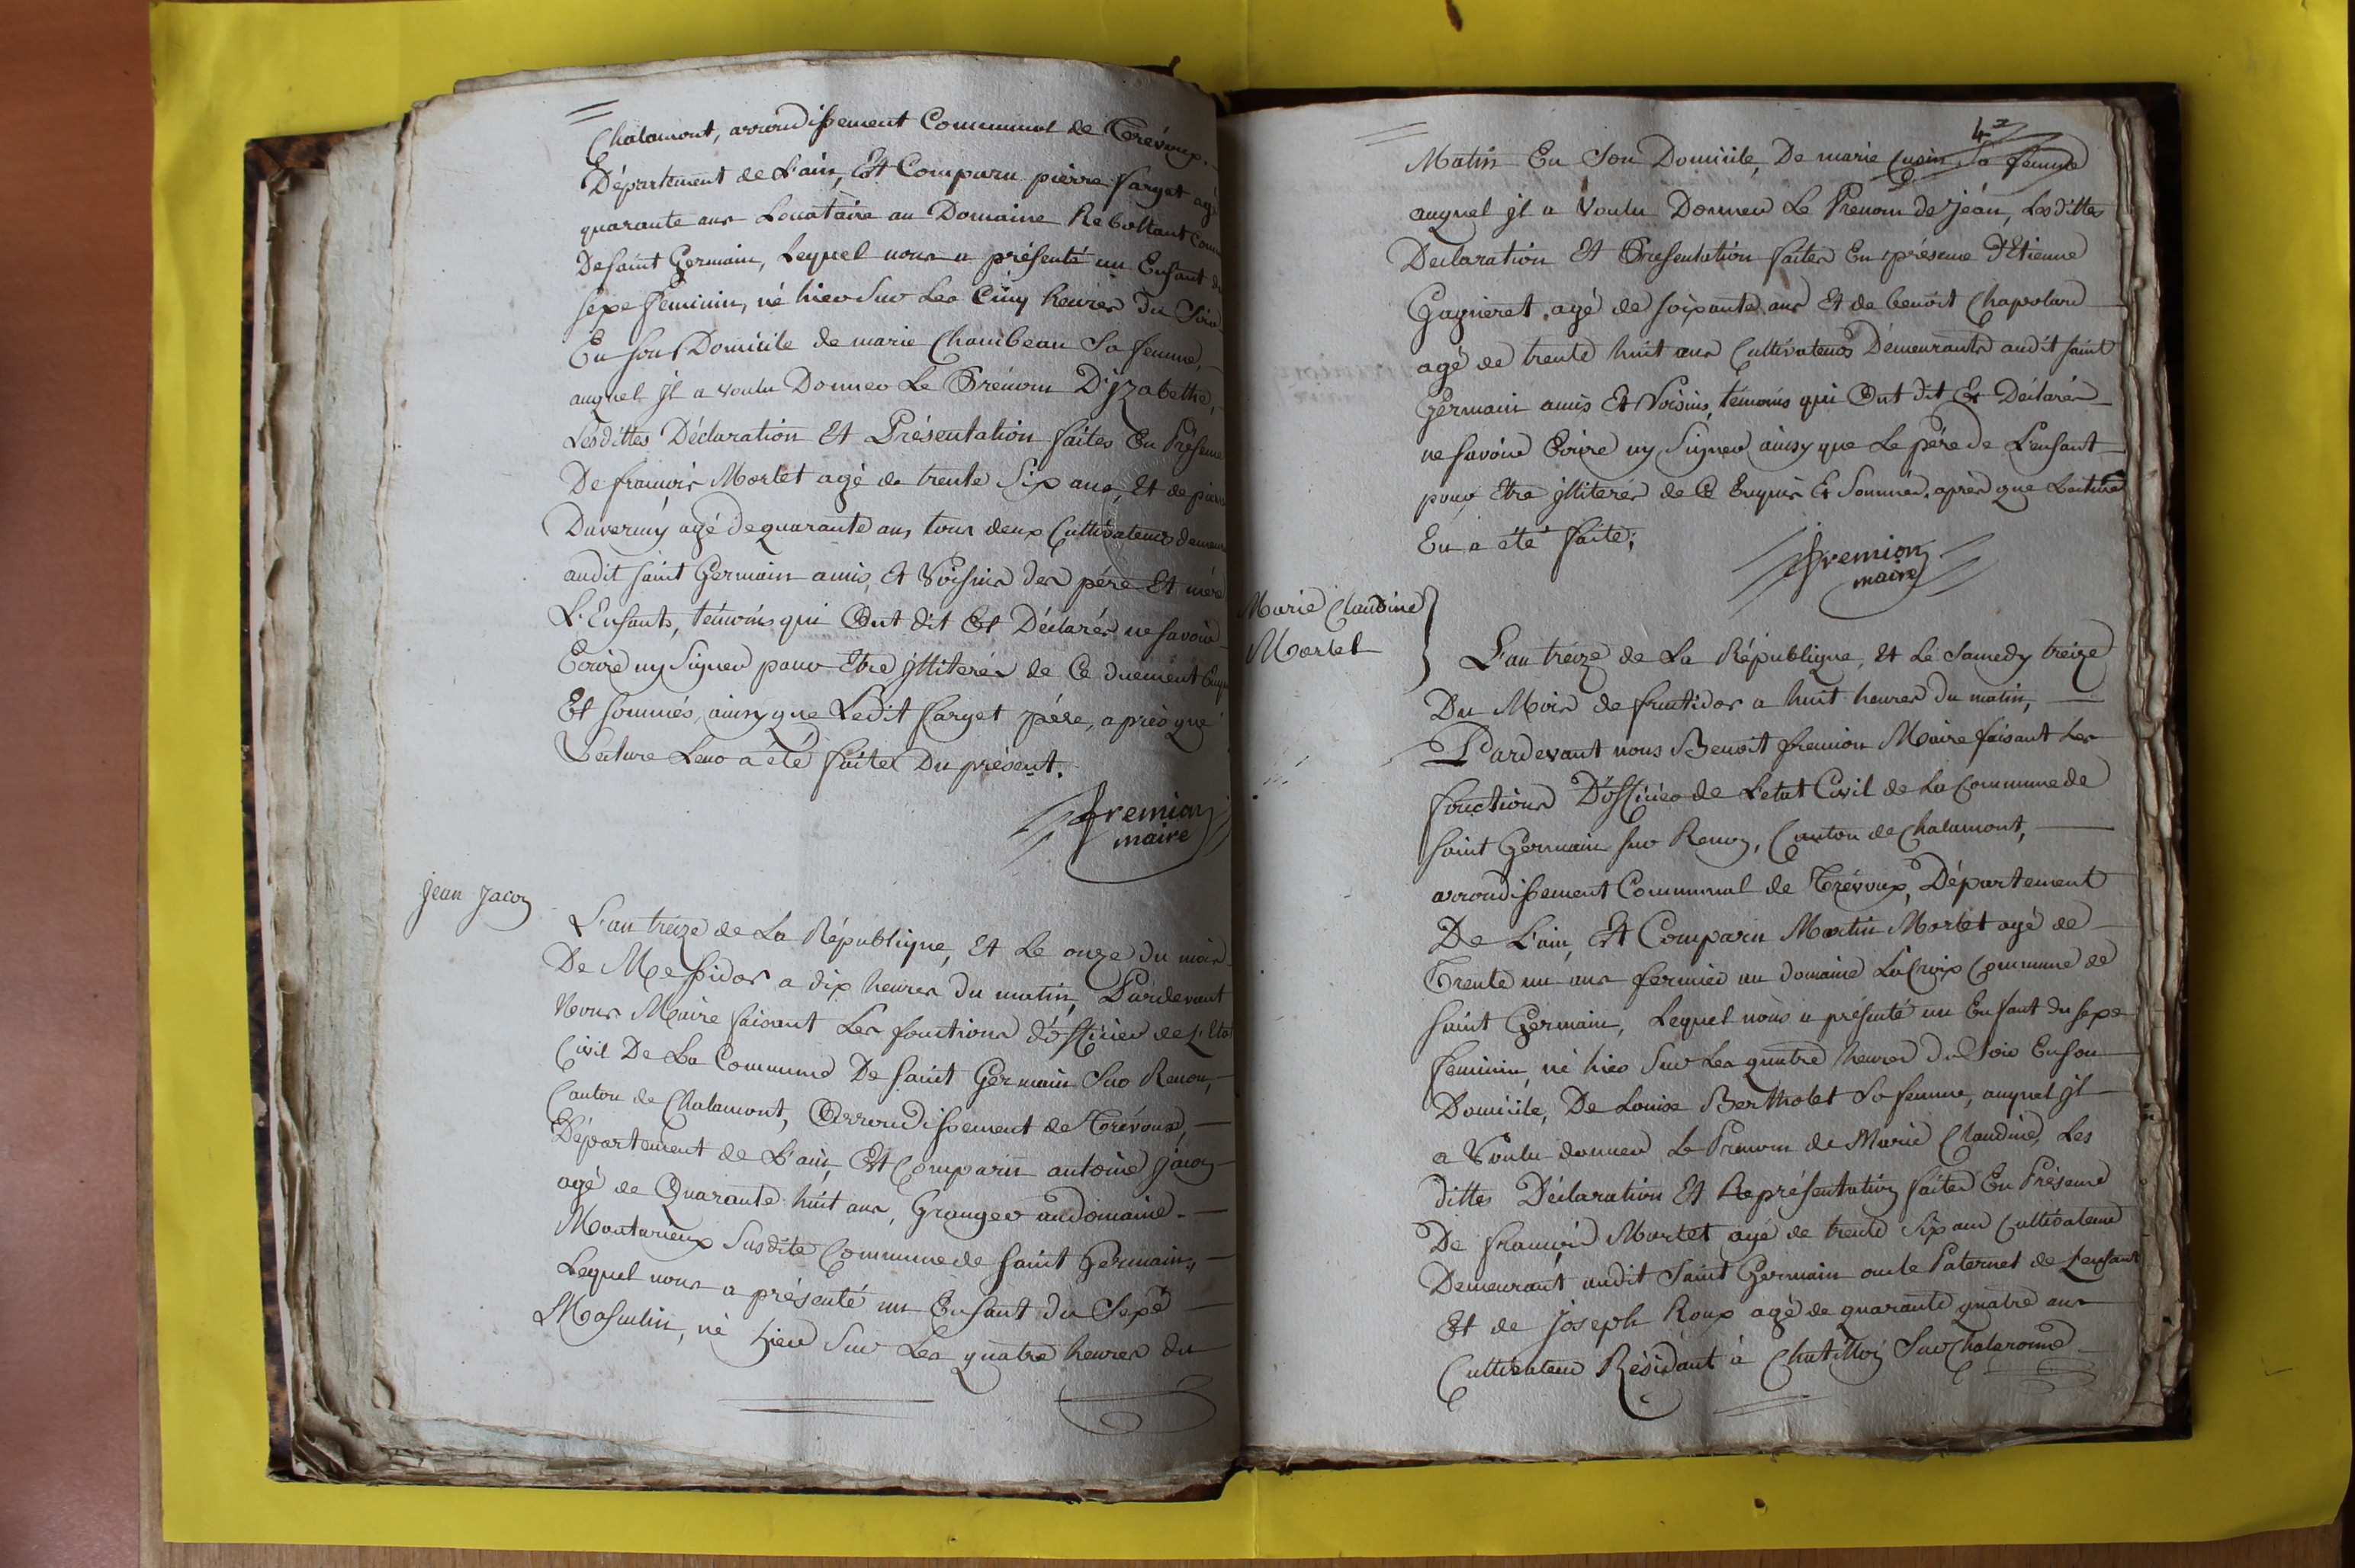 Chalamont, arrondissement Communal de Trévoux.
Département de L'ain, Et Comparu pierre farget agé
quarante ans Locataire au Domaine Rebollant
De saint Germain, Lequel nous a présenté un Enfant du
sexe feminin, né hier Sur Les Cinq heures Du Soir
En son Domicile de marie Chambeau Sa femme,
auquel jl a voulu Donner Le Prénom D'jzabethe,
Lesdittes Déclaration Et Présentation faites En Présence
De françois Mortet agé de trente Six ans, Et de pierre
Duverny agé de quarante ans tous deux Cultivateurs
audit saint Germain amis, Et Voisins des pére Et mére
L'Enfants, témoins qui Ont dit Et Déclarés ne savoir
Ecrire ny Signer pour Etre jlliterés de Ce duement Enquis
Et sommés, ainsy que Ledit farget pére, après que
Lecture Leur a été faitte Du présent.
fremion
maire
jean jacoy
L'an treize de La République, Et Le onze du mois
De Messidor a dix heures du matin, Pardevant
Nous Maire faisant Les fonctions d'officier de L'Etat
Civil De La Commune De saint Germain Sur Renon,
Canton de Chalamont, Arrondissement de Trévoux,
Département de L'ain, Et Comparu antoine jacoy
agé de Quarante huit ans, Granger au domaine
Montarieux Susdite Commune de saint Germain,
Lequel nous a présenté un Enfant du Sexe
Masculin, né hier Sur Les quatre heures du
42
Matin En Son Domicile, De marie Cusin Sa femme
auquel jl a Voulu Donner Le Prenom de jean, Lesdittes
Declaration Et Presentation faites En présence d'Etienne
Gagnieret, agé de soixante ans Et de benoit Chapolard
agé de trente huit ans Cultivateurs Demeurants audit saint
Germain amis Et Voisins, témoins qui Ont dit Et Déclarés
ne savoir Ecrire ny Signer ainsy que Le pére de L'enfant
pour Etre jlliterés de Ce Enquis Et Sommés, après que Lecture
En a été faite;
fremion
maire
Marie Claudine
Mortet
L'an treize de La République, Et Le Samedy treize
Du Mois de fructidor a huit heures du matin,
Pardevant nous Benoit fremion Maire faisant Les
fonctions D'officier de L'etat Civil de La Commune de
saint Germain sur Renon, Canton de Chalamont,
arrondissement Communal de Trévoux, Département
De L'ain, Et Comparu Martin Mortet agé de
Trente un ans fermier au domaine LaCroix Commune de
saint Germain, Lequel nous a présenté un Enfant du sexe
feminin, né hier Sur Les quatre heures du Soir En son
Domicile, De Louise Bertholet Sa femme, auquel jl
a Voulu donner Le Prenom de Marie Claudine, Les
dittes Déclaration Et Représentation faites En Présence
De françois Mortet agé de trente Six ans Cultivateur
Demeurant audit Saint Germain oncle Paternel de L'enfant
Et de joseph Roux agé de quarante quatre ans
Cultivateur Résidant à Chatillon Sur Chalaronne